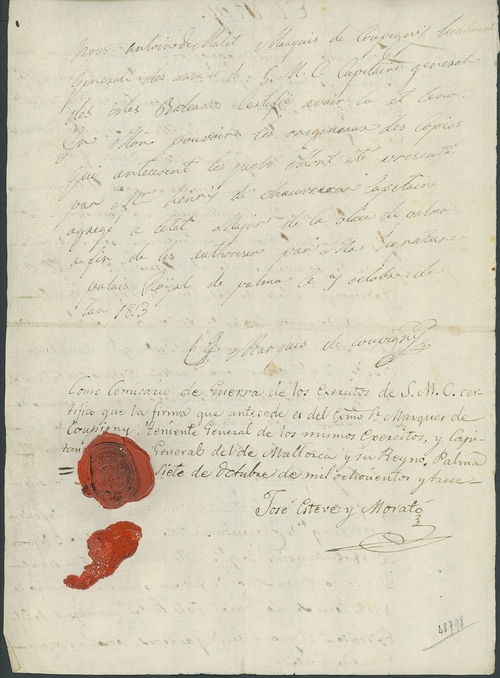 Nous antoine de Malet Marquis de Coupigny Lieutenant
Général des armées de S. M. C. Capitaine général
des isles Baleares certifie avoir lu et tenu
en mon pouvoir les originaux des copies
qui antecedent les quels ont été presentés
par Mr. henry de chauvreux Capitaine
agregé a l'etat Major de la place de palma
afin de les authoriser par ma signature
palais Royal de palma le 7 octobre de
l'an 1813
El Marques de coupigny
Como Comisario de Guerra de los Exercitos de S. M. C. cer-
tifico que la firma que antecede es del Exmo Sr. Marques de
Coupigny, teniente General de los mismos Exercitos, y Capi-
tan General del de Mallorca y su Reyno. Palma
Siete de Octubre de mil ochocientos y trece
José Esteve y Morató
48798